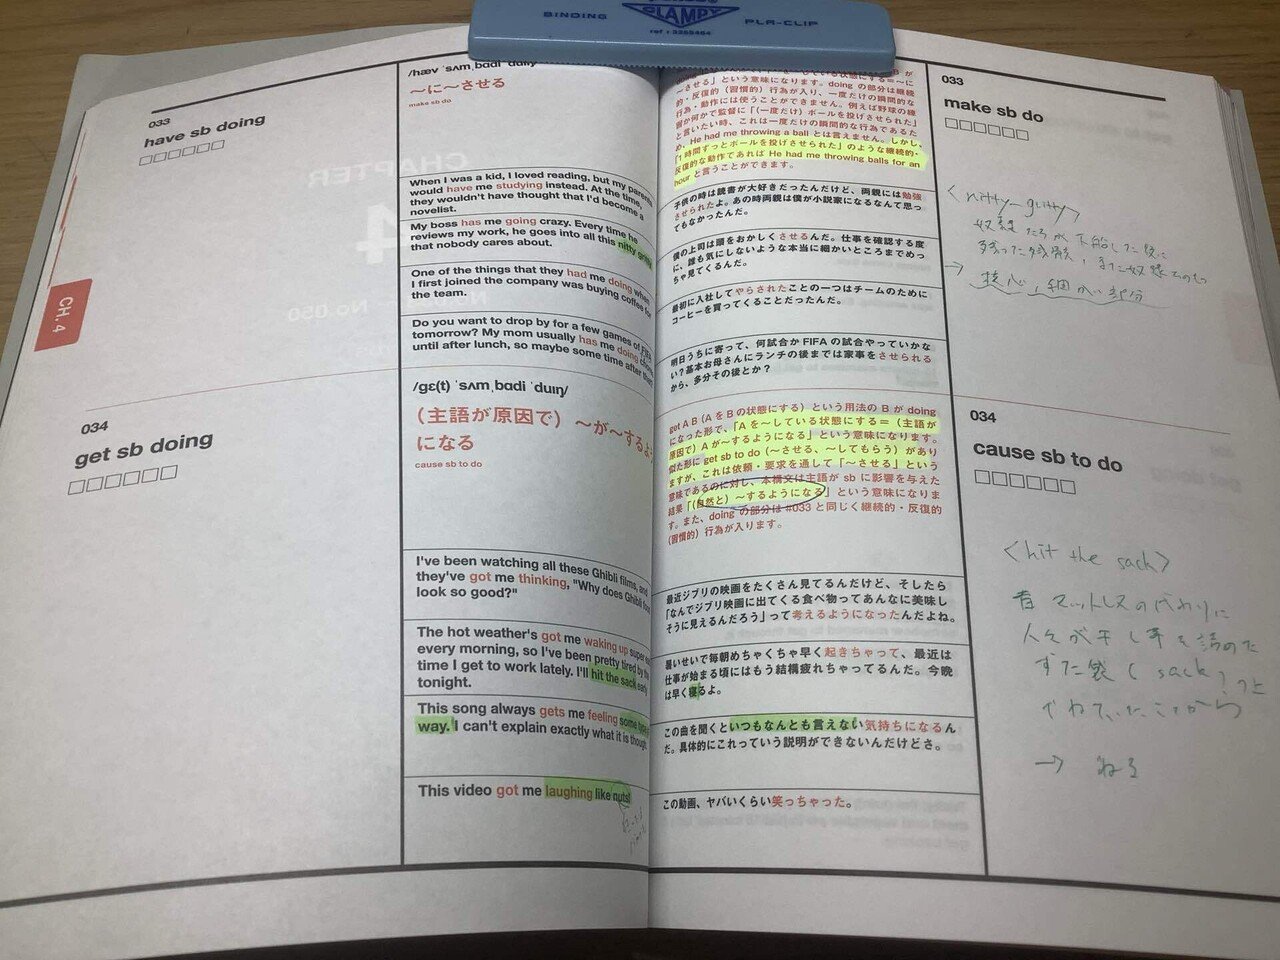 BINDING
CLAMPY
PLA-CLIP
033
have sb doing
□□□□□□
CH. 4
034
get sb doing
□□□□□□
/hæv ˈsʌmˌbɑdi ˈduɪŋ/
〜に〜させる
make sb do
When I was a kid, I loved reading, but my parents
would have me studying instead. At the time,
they wouldn't have thought that I'd become a
novelist.
My boss has me going crazy. Every time he
reviews my work, he goes into all this nitty gritty
that nobody cares about.
One of the things that they had me doing when
I first joined the company was buying coffee for
the team.
Do you want to drop by for a few games of FIFA
tomorrow? My mom usually has me doing chores
until after lunch, so maybe some time after that?
/gɛ(t) ˈsʌmˌbɑdi ˈduɪŋ/
（主語が原因で）〜が〜するよ
になる
cause sb to do
I've been watching all these Ghibli films, and
they've got me thinking, "Why does Ghibli food
look so good?"
The hot weather's got me waking up super
every morning, so I've been pretty tired by the
time I get to work lately. I'll hit the sack early
tonight.
This song always gets me feeling some type
way. I can't explain exactly what it is though.
This video got me laughing like nuts!
〜させる」という意味になります。doing の部分は継続
的・反復的（習慣的）行為が入り、一度だけの瞬間的な
行為・動作には使うことができません。例えば野球の練
習か何かで監督に「（一度だけ）ボールを投げさせられた」
と言いたい時、これは一度だけの瞬間的な行為であるた
め、He had me throwing a ball とは言えません。しかし、
「1時間ずっとボールを投げさせられた」のような継続的・
反復的な動作であれば He had me throwing balls for an
hour と言うことができます。
子供の時は読書が大好きだったんだけど、両親には勉強
させられたよ。あの時両親は僕が小説家になるなんて思っ
てもなかったんだ。
僕の上司は頭をおかしくさせるんだ。仕事を確認する度
に、誰も気にしないような本当に細かいところまでめっ
ちゃ見てくるんだ。
最初に入社してやらされたことの一つはチームのために
コーヒーを買ってくることだったんだ。
明日うちに寄って、何試合か FIFA の試合やっていかな
い？基本お母さんにランチの後までは家事をさせられる
から、多分その後とか？
get A B (A を B の状態にする) という用法の B が doing
になった形で、「A を〜している状態にする＝（主語が
原因で）A が〜するようになる」という意味になります。
似た形に get sb to do (〜させる、〜してもらう) があり
ますが、これは依頼・要求を通して「〜させる」という
意味であるのに対し、本構文は主語が sb に影響を与えた
結果「（自然と）〜するようになる」という意味になりま
す。また、doing の部分は #033 と同じく継続的・反復的
（習慣的）行為が入ります。
最近ジブリの映画をたくさん見てるんだけど、そしたら
「なんでジブリ映画に出てくる食べ物ってあんなに美味し
そうに見えるんだろう」って考えるようになったんだよね。
暑いせいで毎朝めちゃくちゃ早く起きちゃって、最近は
仕事が始まる頃にはもう結構疲れちゃってるんだ。今晩
は早く寝るよ。
この曲を聞くといつもなんとも言えない気持ちになるん
だ。具体的にこれっていう説明ができないんだけどさ。
この動画、ヤバいくらい笑っちゃった。
033
make sb do
□□□□□□
<nitty-gritty>
奴隷たちが下船した後に
残った残骸、また奴隷そのもの
→ 核心、細かい部分
034
cause sb to do
□□□□□□
<hit the sack>
昔 マットレスの代わりに
人々が干し草を詰めた
ずた袋 (sack) の上
でねていたことから
→ ねる